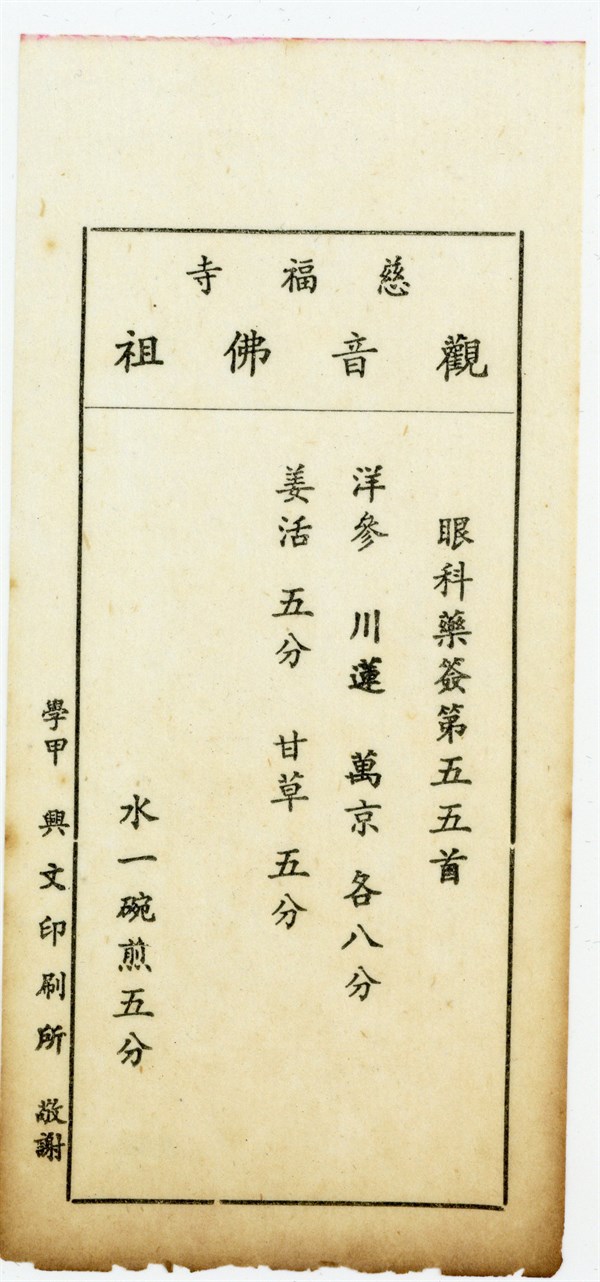 慈福寺
觀音佛祖
眼科藥簽第五五首
洋參 川蓮 萬京 各八分
姜活 五分 甘草 五分
水一碗煎五分
學甲 興文印刷所 敬謝